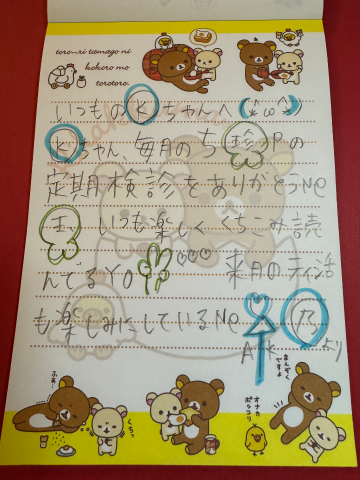 toro~ri tamago ni
kokoro mo
torotoro.
いつものKちゃんへ(´ω`)
Kちゃん、毎月のち診Pの
定期検診をありがとうNe
いつも楽しくくちコみ読
んでるYO♡♡♡ 来月のティ活
も楽しみにしているNe
A K 乃より
ふぁ〜
くちっ
オナカ
ポッコリ
まんぞく
ですよ